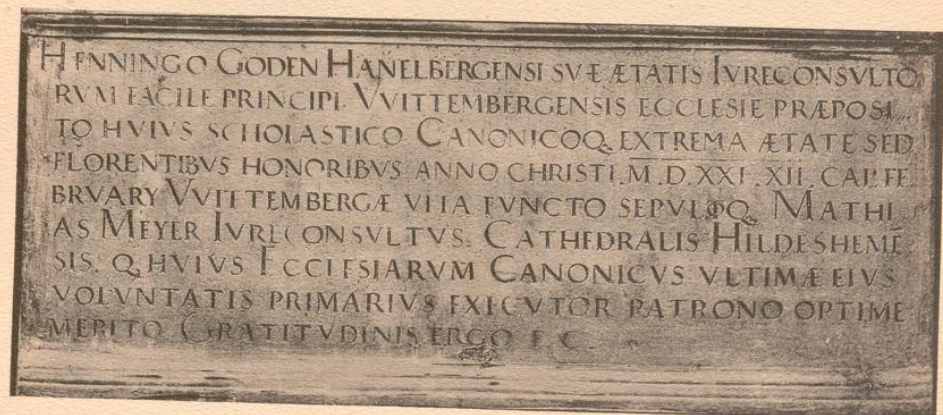 HENNINGO GODEN HAVELBERGENSI SVÆ ÆTATIS IVRECONSVLTO
RVM FACILE PRINCIPI. VVITTEMBERGENSIS ECCLESIE PRÆPOSI
TO HVIVS SCHOLASTICO CANONICOQ. EXTREMA ÆTATE SED
FLORENTIBVS HONORIBVS ANNO CHRISTI.M.D.XXI.XII. CAL' FE
BRVARY VVITTEMBERGÆ VITA FVNCTO SEPVLTOQ. MATHI
AS MEYER IVRECONSVLTVS. CATHEDRALIS HILDESHEMĒ
SIS. Q. HVIVS ECCLESIARVM CANONICVS VLTIMÆ EIVS
VOLVNTATIS PRIMARIVS EXECVTOR PATRONO OPTIME
MERITO GRATITVDINIS ERGO F. C.